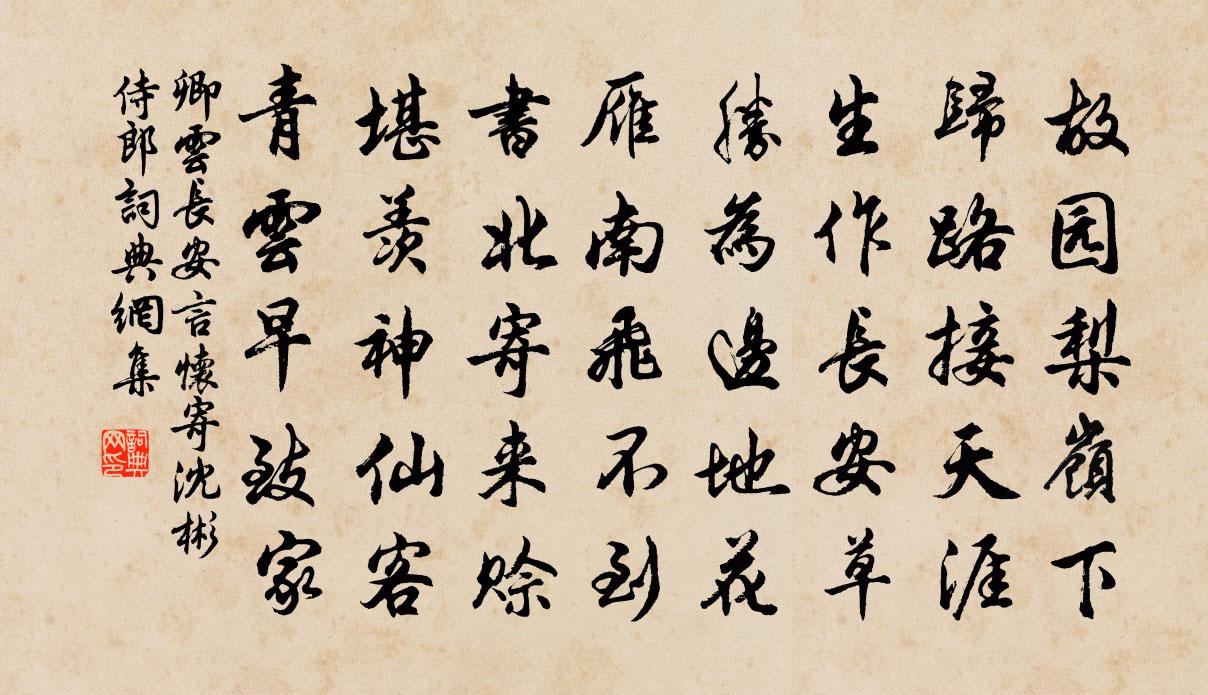 故园梨嶺下
歸路接天涯
生作長安草
勝為邊地花
雁南飛不到
書北寄来賒
堪羨神仙客
青雲早致家
卿雲長安言懷寄沈彬
侍郎詞典網集
詞典
网印